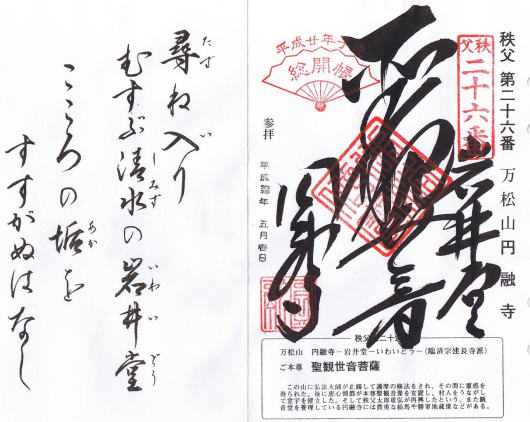 秩父 第二十六番 万松山円融寺
秩父
二十六番
岩井堂
平成廿年子
総開帳
参拝 平成 年 五月壱日
秩父 二十
万松山 円融寺―岩井堂―いわいどう―(臨済宗建長寺派)
ご本尊 聖観世音菩薩
この山に弘法大師が止錫して護摩の修法をされ、その間に霊感を
得られた。後に恵心僧都が本尊聖観音像を安置し、村人をうながし
て堂宇を建立した。そして秩父太郎重弘が再興したという。また観
音堂を管理している円融寺には貴重な絵馬や勝軍地蔵像などがある。
尋ね入り
たず い
むすぶ清水の岩井堂
しみず いわい どう
こころの垢を
あか
すすがぬはなし